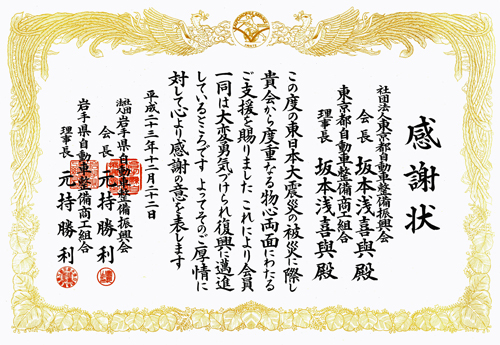 感謝状
社団法人東京都自動車整備振興会
会長 坂本浅喜與殿
東京都自動車整備商工組合
理事長 坂本浅喜與殿
この度の東日本大震災の被災に際し
貴会から度重なる物心両面にわたる
ご支援を賜りました これにより会員
一同は大変勇気づけられ復興に邁進
しているところです よってそのご厚情に
対して心より感謝の意を表します
平成二十三年十二月二十二日
社団法人岩手県自動車整備振興会
会長 元持勝利
岩手県自動車整備商工組合
理事長 元持勝利